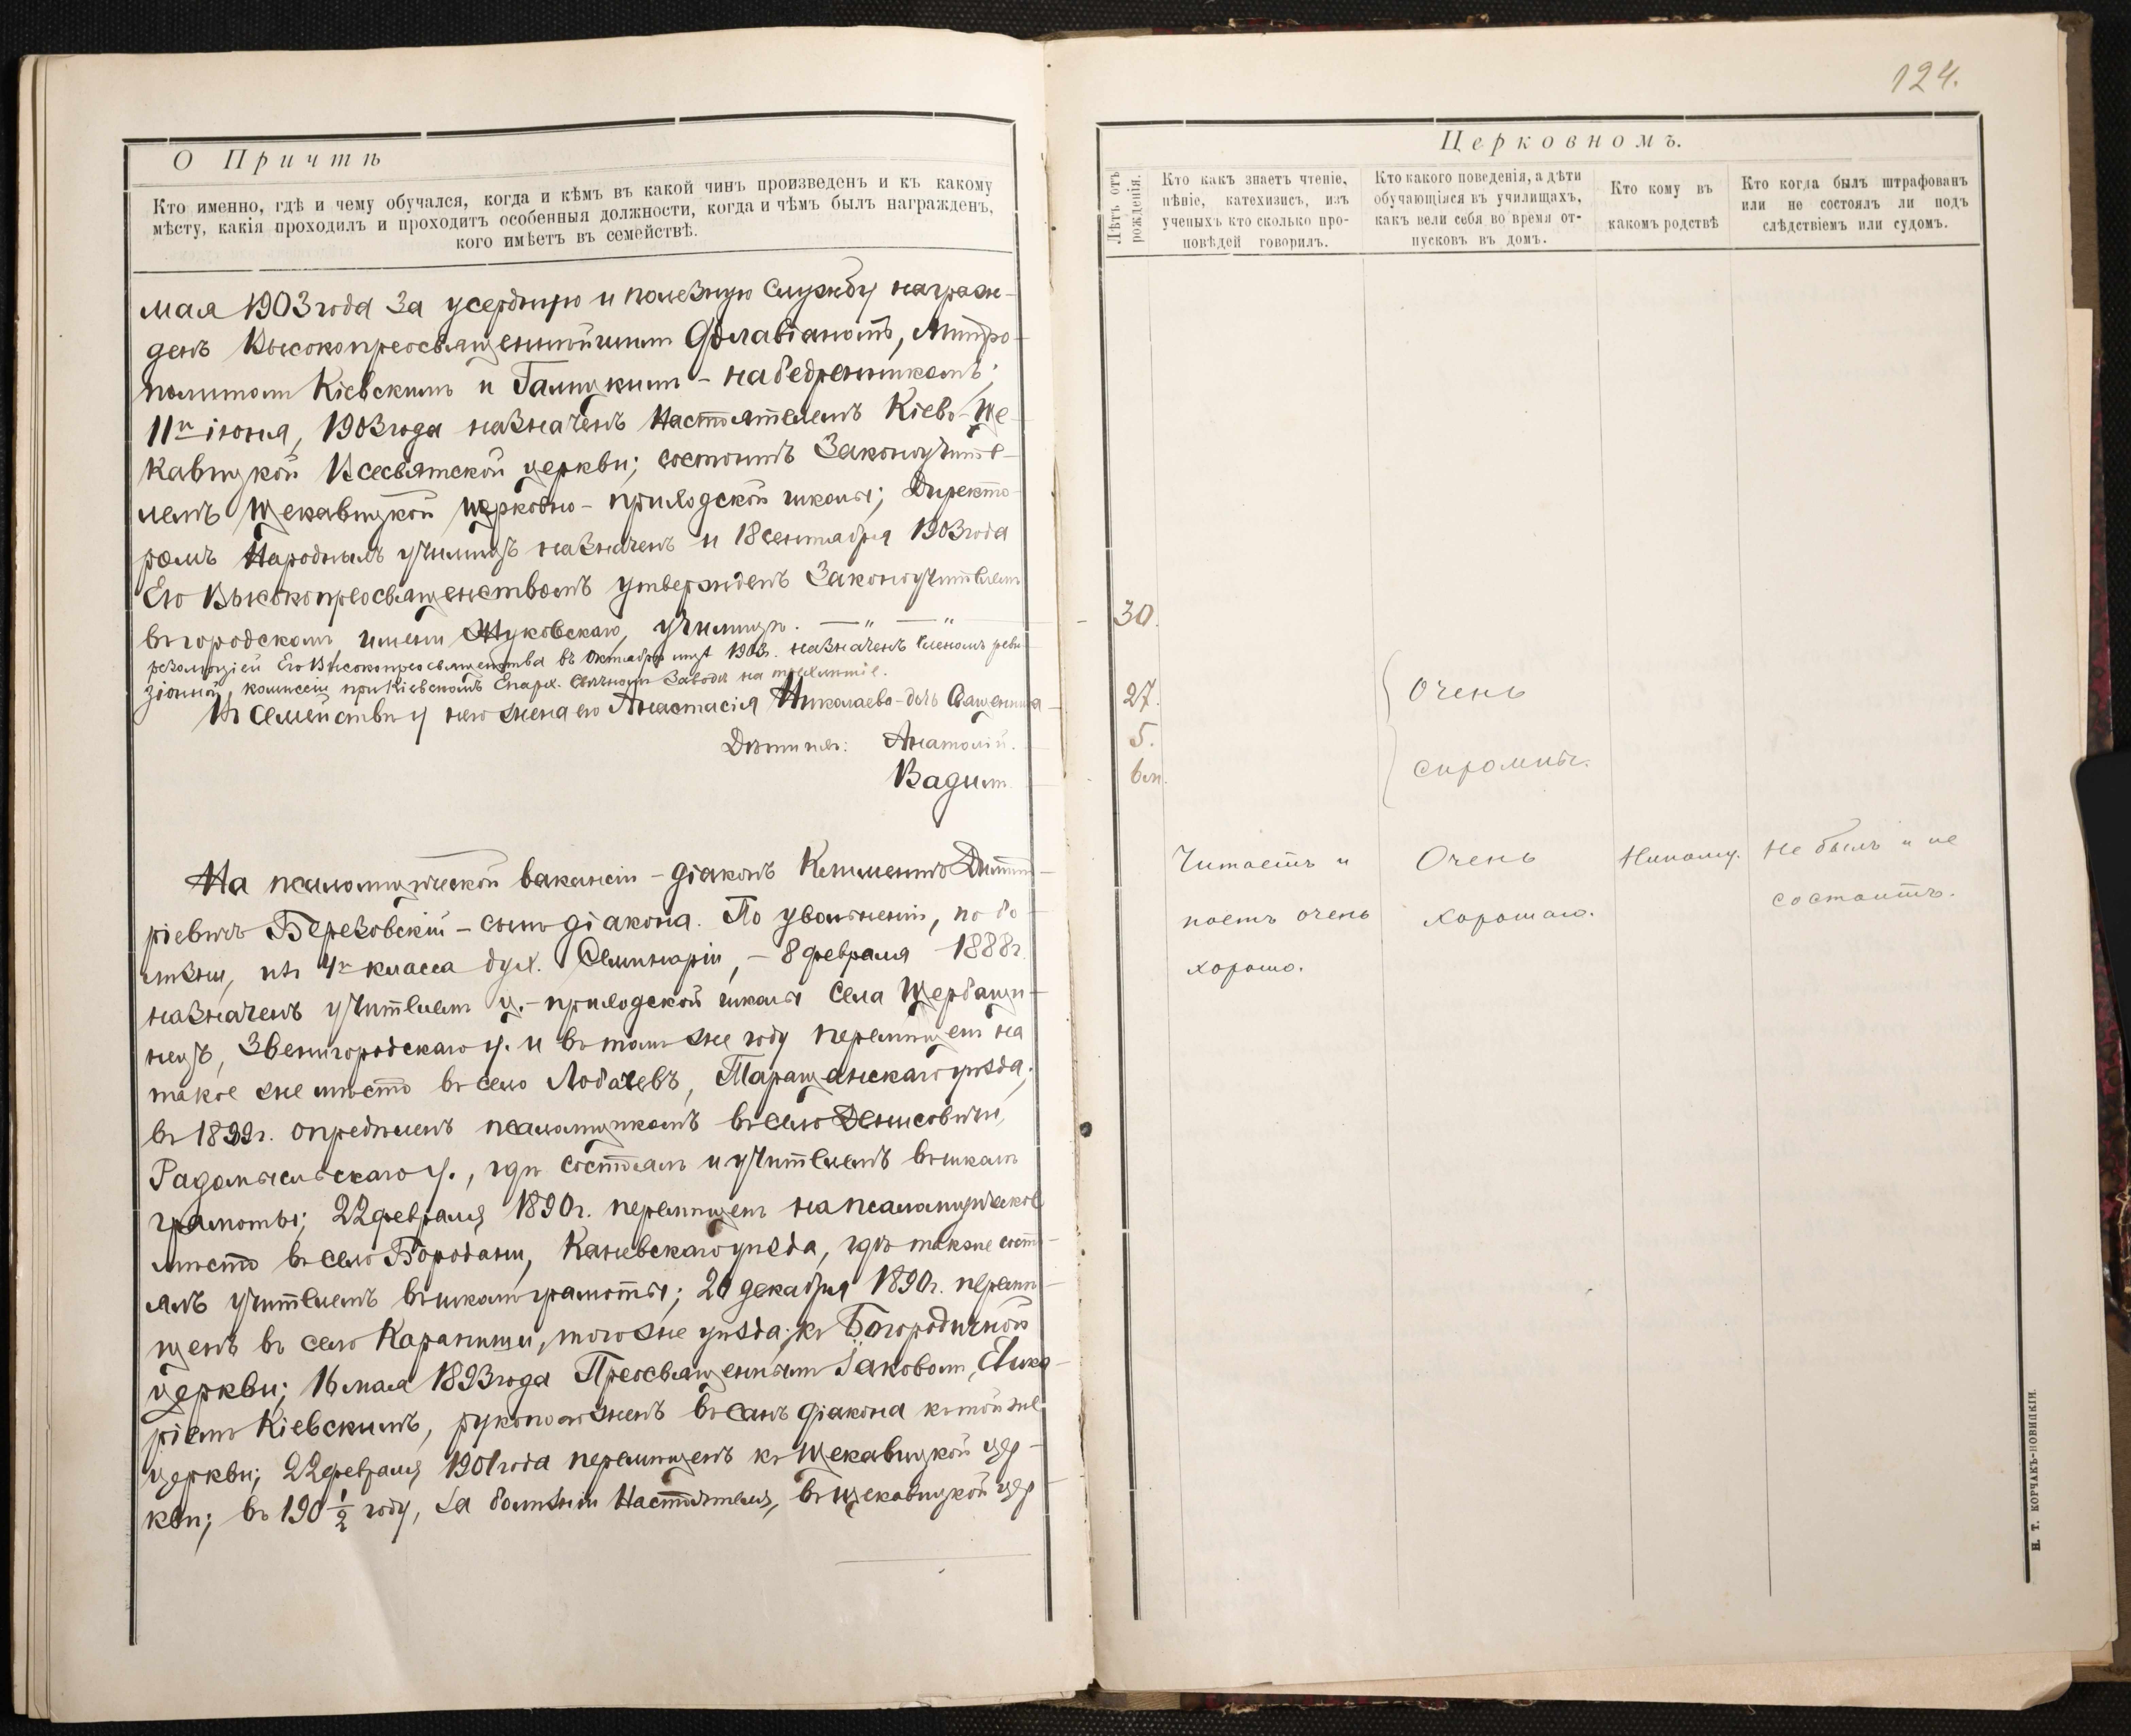 О Причтѣ
Кто именно, гдѣ и чему обучался, когда и кѣмъ въ какой чинъ произведенъ и къ какому
мѣсту, какія проходилъ и проходитъ особенныя должности, когда и чѣмъ былъ награжденъ,
кого имѣетъ въ семействѣ.
мая 1903 года за усердную и полезную службу награж-
денъ Высокопреосвященнѣйшимъ Флавіаномъ, Митро-
политомъ Кіевскимъ и Галицкимъ - набедренникомъ;
11го іюня, 1903 года назначенъ Настоятелемъ Кіево-Ще-
кавицкой Всесвятской церкви; состоитъ Законоучите-
лемъ Щекавицкой церковно-приходской школы; Директо-
ромъ Народныхъ училищъ назначенъ и 18 сентября 1903 года
Его Высокопреосвященствомъ утвержденъ Законоучителемъ
въ городскомъ имени Жуковскаго, училищѣ. — " — "
резолюціей Его Высокопреосвященства въ Октябрѣ мцѣ 1903г. назначенъ Членомъ реви-
зіонной, комиссіи при Кіевскомъ Епарх. Свѣчномъ Заводѣ на трехлѣтіе.
Въ семействѣ у него жена его Анастасія Николаева - дочь Священника
Дѣти ихъ: Анатолій.
Вадимъ.
На псаломщической вакансіи - діаконъ Климентъ Дмит-
ріевичъ Березовскій - сынъ діакона. По увольненіи, по бо-
лѣзни, изъ 4го класса дух. Семинаріи, - 8 февраля 1888г.
назначенъ учителемъ ц.-приходской школы села Щербаши-
нецъ, Звенигородскаго у. и въ томъ же году перемѣщенъ на
такое же мѣсто въ село Лобачевъ, Таращанскаго уѣзда;
въ 1889г. опредѣленъ псаломщикомъ въ село Денисовичи,
Радомысльскаго у., гдѣ состоялъ и учителемъ въ школѣ
грамоты; 22 февраля 1890г. перемѣщенъ на псаломщическое
мѣсто въ село Бородани, Каневскаго уѣзда, гдѣ также состо-
ялъ учителемъ въ школѣ грамоты; 20 декабря 1890г. перемѣ-
щенъ въ село Карапыши, того же уѣзда, къ Богородичной
церкви; 16 мая 1893 года Преосвященнымъ Іаковомъ, Вика-
ріемъ Кіевскимъ, рукоположенъ въ санъ діакона къ той же
церкви; 22 февраля 1901 года перемѣщенъ къ Щекавицкой цер-
кви; въ 190 1/2 году, за болѣзнію Настоятеля, въ Щекавицкой цер-
124.
Церковномъ.
Лѣтъ отъ рожденія.
Кто какъ знаетъ чтеніе,
пѣніе, катехизисъ, изъ
ученыхъ кто сколько про-
повѣдей говорилъ.
Кто какого поведенія, а дѣти
обучающіяся въ училищахъ,
какъ вели себя во время от-
пусковъ въ домъ.
Кто кому въ
какомъ родствѣ
Кто когда былъ штрафованъ
или не состоялъ ли подъ
слѣдствіемъ или судомъ.
30.
27. Очень
5.
6 м. скромны.
Читаетъ и Очень Никому. Не былъ и не
поетъ очень хорошаго. состоитъ.
хорошо.
Н. Т. КОРЧАКЪ-НОВИЦКІЙ.